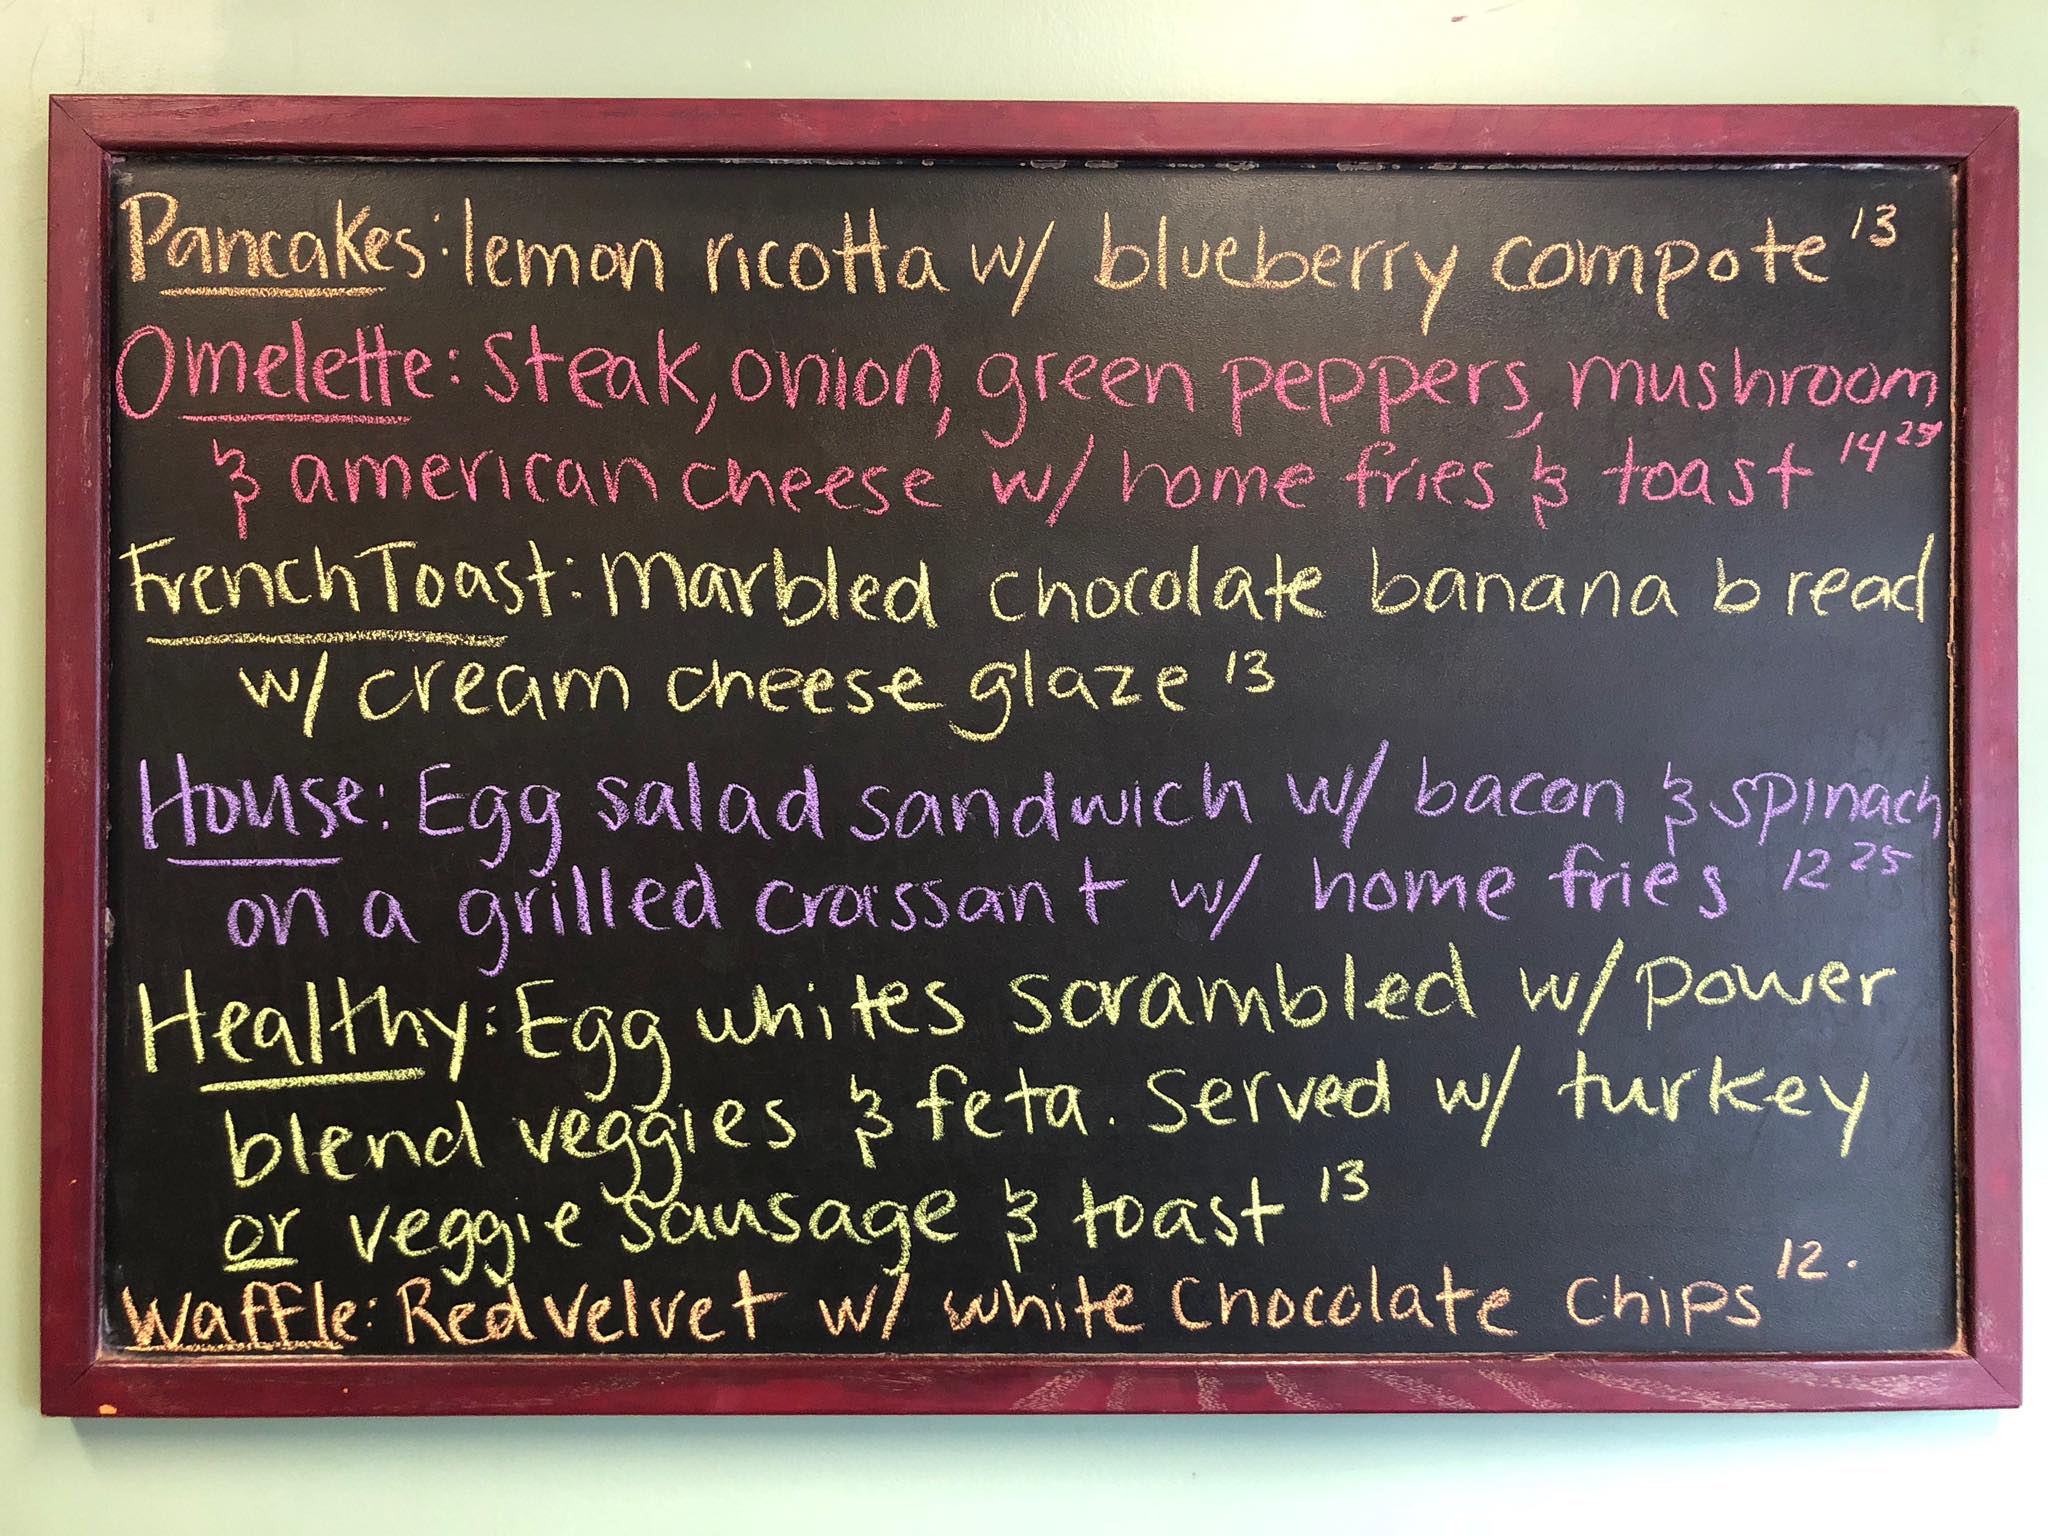 Pancakes: lemon ricotta w/ blueberry compote 13
Omelette: Steak, onion, green peppers, mushroom
& american cheese w/ home fries & toast 14 25
French Toast: Marbled chocolate banana bread
w/ cream cheese glaze 13
House: Egg salad sandwich w/ bacon & spinach
on a grilled croissant w/ home fries 12 25
Healthy: Egg whites scrambled w/ power
blend veggies & feta. Served w/ turkey
or veggie sausage & toast 13
Waffle: Red velvet w/ white Chocolate Chips 12.